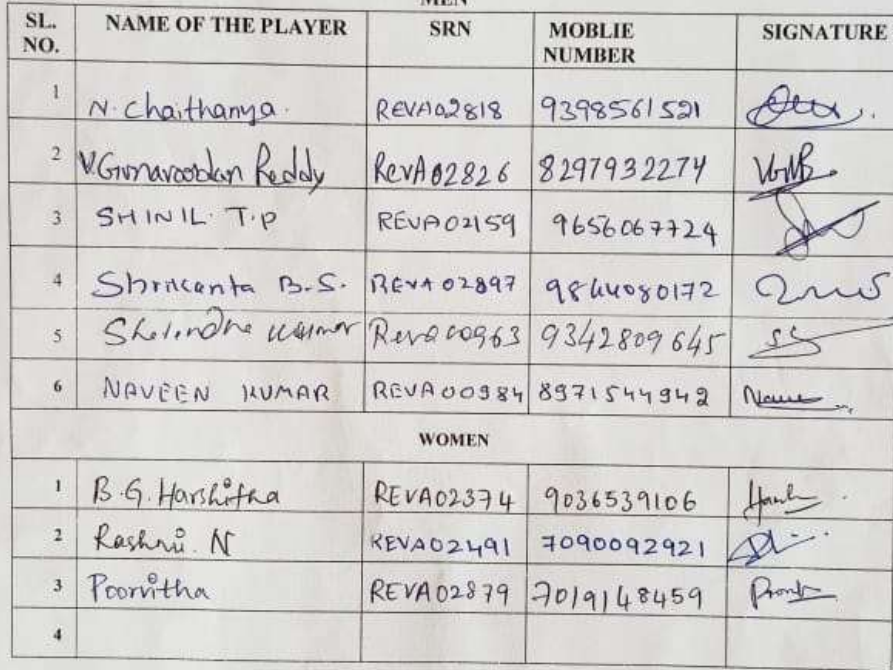 MEN
SL. NO. NAME OF THE PLAYER SRN MOBLIE NUMBER SIGNATURE
1 N. Chaithanya. REVA02818 9398561521
2 V. Reddy RevA02826 8297932274
3 SHINIL T.P REVA02159 9656067724
4 Shrikanta B.S. REVA02897 9844080172
5 Reva00963 9342809645
6 NAVEEN KUMAR REVA00984 8971544942
WOMEN
1 B.G. Harshitha REVA02374 9036539106
2 Rashmi. N REVA02491 7090092921
3 Poorvitha REVA02879 7019148459
4